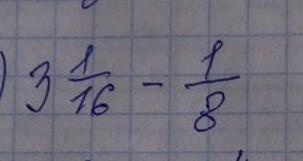 ) 3 1/16 - 1/8